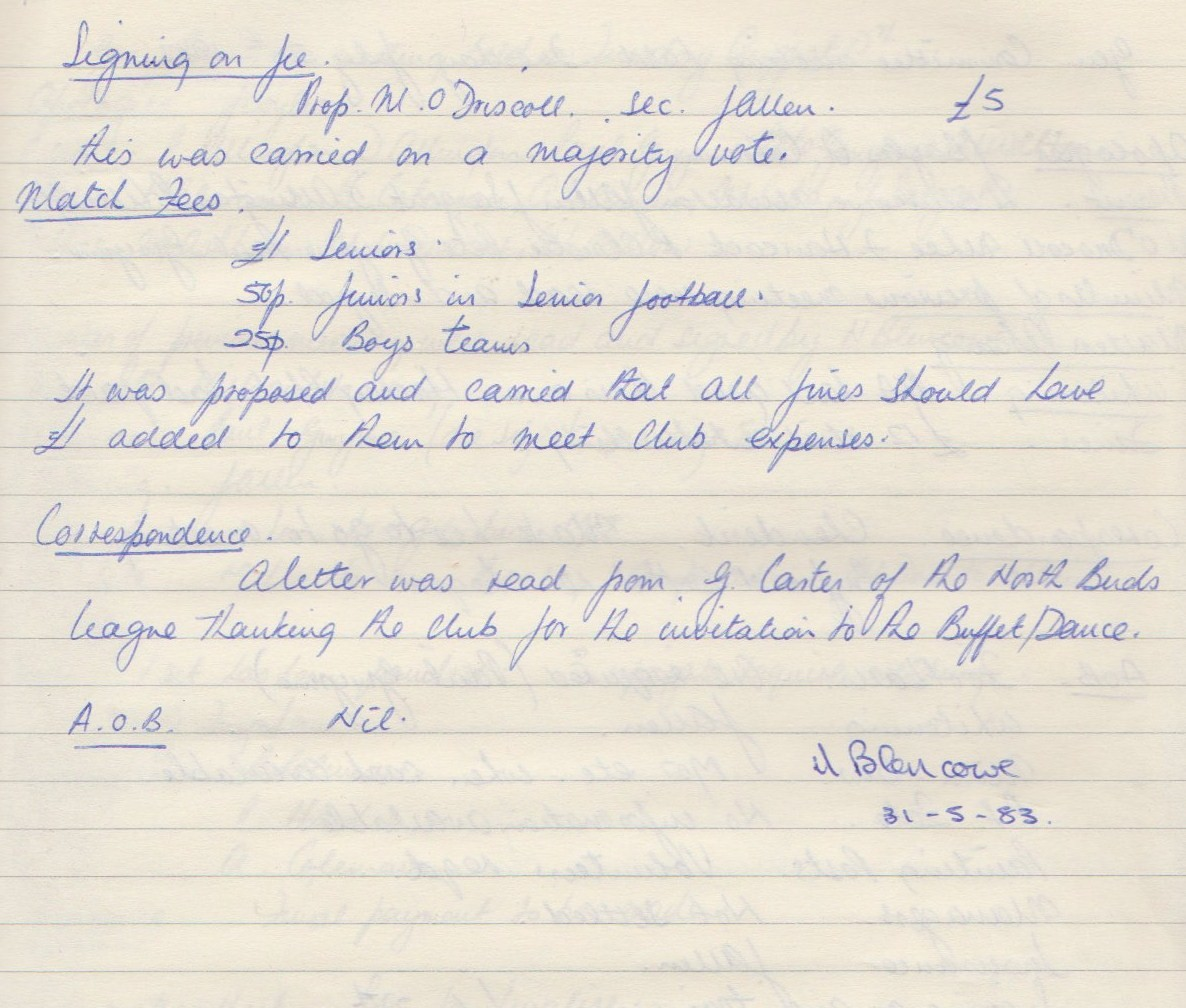 Signing on fee.
Prop. M. O'Driscoll. sec. J Allen. £5
This was carried on a majority vote.
Match Fees.
£1 Seniors.
50p. Juniors in Senior football.
25p. Boys teams
It was proposed and carried that all fines should have
£1 added to them to meet Club expenses.
Correspondence.
A letter was read from G. Carter of the North Bucks
League thanking the Club for the invitation to the Buffet/Dance.
A.O.B. Nil.
Blencowe
31-5-83.